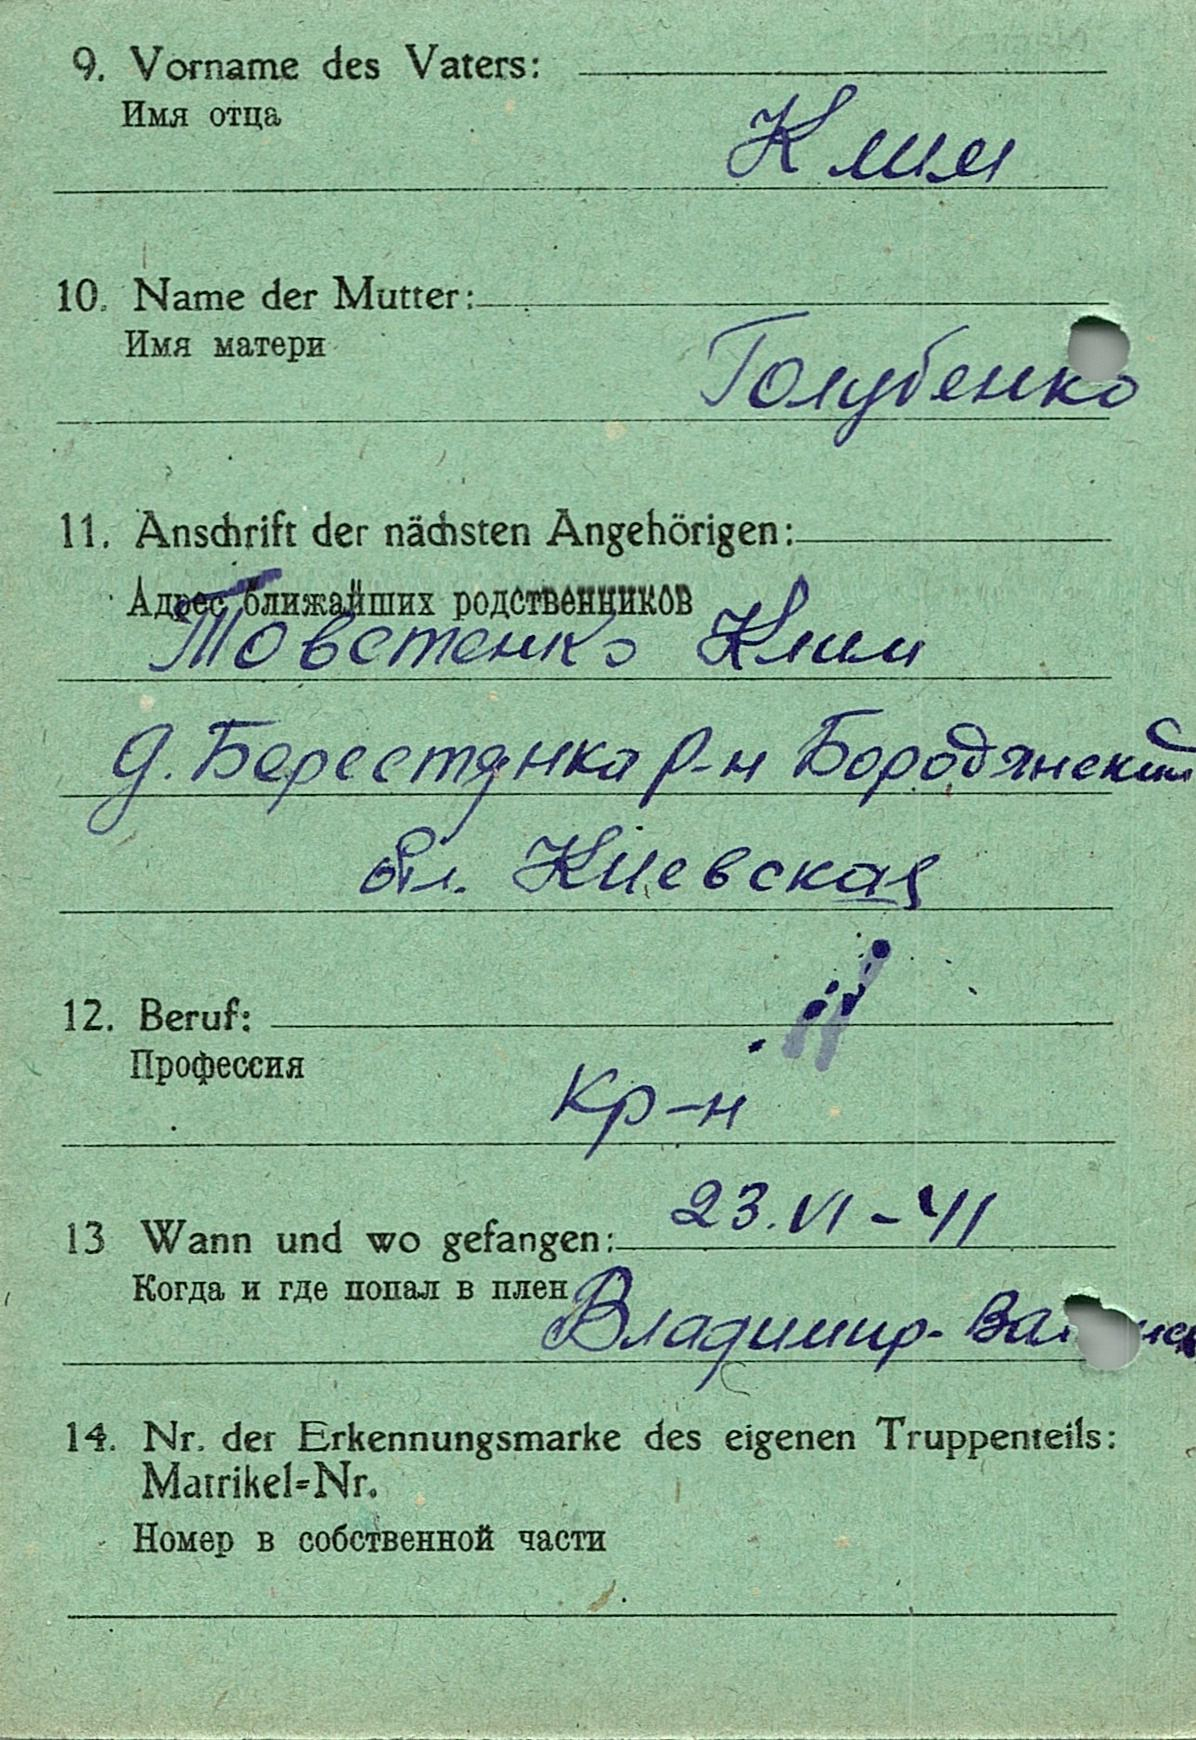 9. Vorname des Vaters:
Имя отца
Клим
10. Name der Mutter:
Имя матери
Голубенко
11. Anschrift der nächsten Angehörigen:
Адрес ближайших родственников
Товстенко Клим
д. Берестянка р-н Бородянский
обл. Киевская
12. Beruf:
Профессия
кр-н
23.VI-41
13 Wann und wo gefangen:
Когда и где попал в плен
Владимир-
14. Nr. der Erkennungsmarke des eigenen Truppenteils:
Matrikel=Nr.
Номер в собственной части